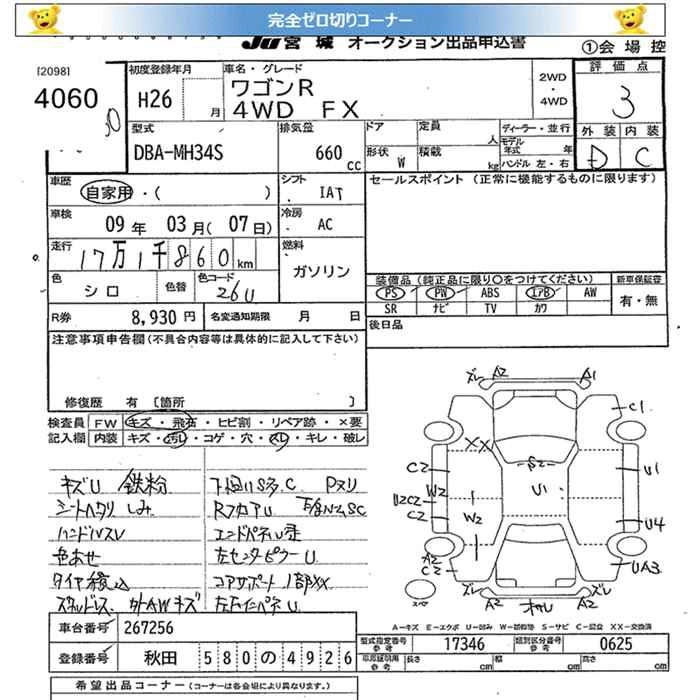 完全ゼロ切りコーナー
JU宮城 オークション出品申込書
①会場控
[2098]
4060
初度登録年月
H26 月
車名・グレード
ワゴンR
4WD FX
2WD
・
4WD
評価点
3
外装 内装
D C
型式
DBA-MH34S
排気量
660 cc
ドア
形状 W
定員 人
積載 kg
ディーラー・並行
モデル年式 年
ハンドル 左・右
車歴
自家用・( )
シフト
IAT
セールスポイント (正常に機能するものに限ります)
車検
09 年 03 月( 07 日)
冷房
AC
走行
17万1千860km
燃料
ガソリン
色
シロ
色替
色コード
26U
装備品 (純正品に限り〇をつけてください)
新車保証書
PS PW ABS エアB AW
SR ナビ TV カワ
有・無
R券 8,930 円
名変通知期限 月 日
後日品
注意事項申告欄 (不具合内容等は具体的に記入して下さい)
修復歴 有 [箇所 ]
検査員
記入欄
FW キズ・飛石・ヒビ割・リペア跡・×要
内装 キズ・汚レ・コゲ・穴・スレ・キレ・破レ
キズU 鉄粉
シートヘタリ しみ
ハンドルスレ
色あせ
タイヤ積込
スタッドレス 外AWキズ
エンドパネル歪
左センターピラーU
コアサポート1部XX
ズレ A2 A1
C1
XX
S2
C2 W2 U1 U1
U2C2
C2 W2 U4
A2
C2 UA3
ズレ ズレ
A2 A2
スペア
A−キズ E−エクボ U−凹み W−補修跡 S−サビ C−腐食 XX−交換済
車台番号 267256
型式指定番号
参考
17346
類別区分番号
参考
0625
登録番号 秋田 580の4926
車庫証明用
参考
長さ cm 幅 cm 高さ cm
希望出品コーナー (コーナーは各会場により異なります)